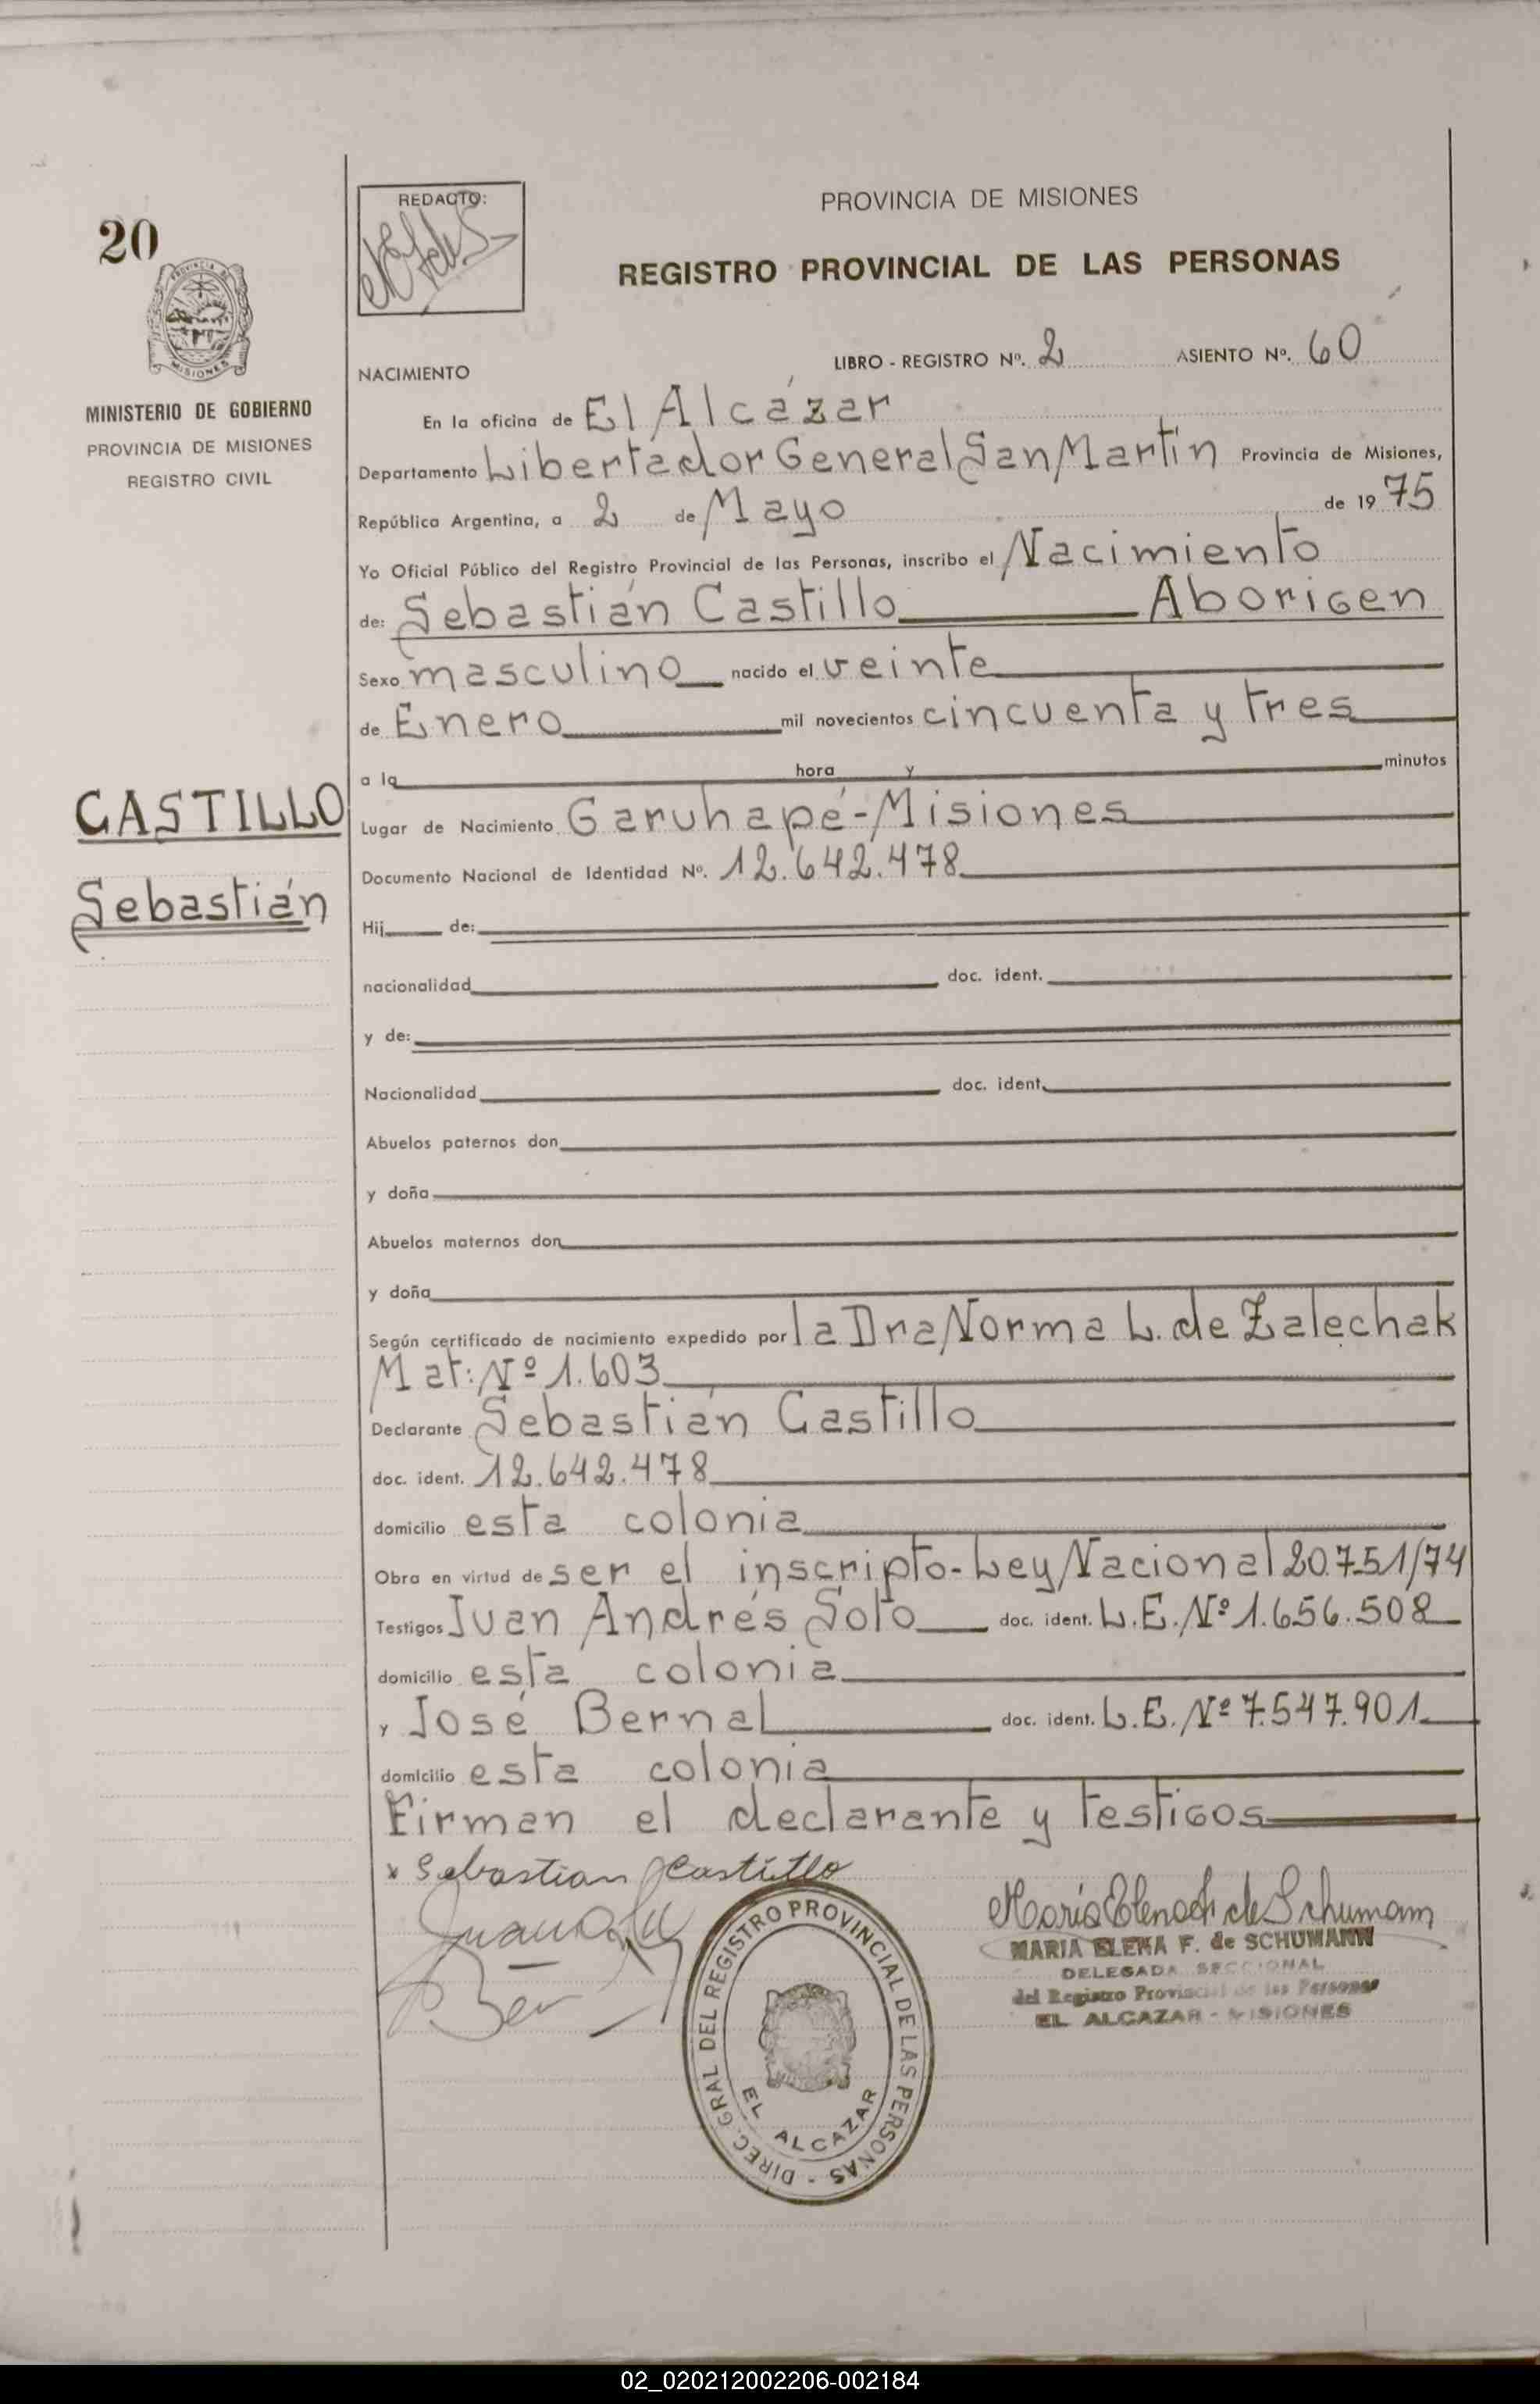 20
REDACTO:
PROVINCIA DE MISIONES
REGISTRO PROVINCIAL DE LAS PERSONAS
MISIONES
MINISTERIO DE GOBIERNO
PROVINCIA DE MISIONES
REGISTRO CIVIL
NACIMIENTO
LIBRO - REGISTRO Nº. 2 ASIENTO Nº. 60
En la oficina de El Alcázar
Departamento Libertador General San Martín Provincia de Misiones,
República Argentina, a 2 de Mayo de 1975
Yo Oficial Público del Registro Provincial de las Personas, inscribo el Nacimiento
de: Sebastián Castillo Aborigen
Sexo masculino nacido el veinte
de Enero mil novecientos cincuenta y tres
a la hora y minutos
CASTILLO
Sebastián
Lugar de Nacimiento Garuhapé-Misiones
Documento Nacional de Identidad Nº. 12.642.478
Hij de:
nacionalidad doc. ident.
y de:
Nacionalidad doc. ident.
Abuelos paternos don
y doña
Abuelos maternos don
y doña
Según certificado de nacimiento expedido por la Dra Norma L. de Zalechak
Mat: Nº 1.603
Declarante Sebastián Castillo
doc. ident. 12.642.478
domicilio esta colonia
Obra en virtud de ser el inscripto-Ley Nacional 20.751/74
Testigos Juan Andrés Soto doc. ident. L.E. Nº 1.656.508
domicilio esta colonia
y José Bernal doc. ident. L.E. Nº 7.547.901
domicilio esta colonia
Firman el declarante y testigos
x Sebastian Castillo
MARIA ELENA F. de SCHUMANN
DELEGADA SECCIONAL
del Registro Provincial de las Personas
EL ALCAZAR - MISIONES
DIREC. GRAL DEL REGISTRO PROVINCIAL DE LAS PERSONAS -
EL ALCAZAR
02_020212002206-002184